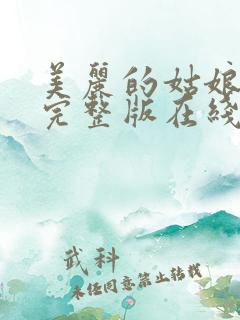 美麗的姑娘
完整版在綫
武科
未经同意禁止转载